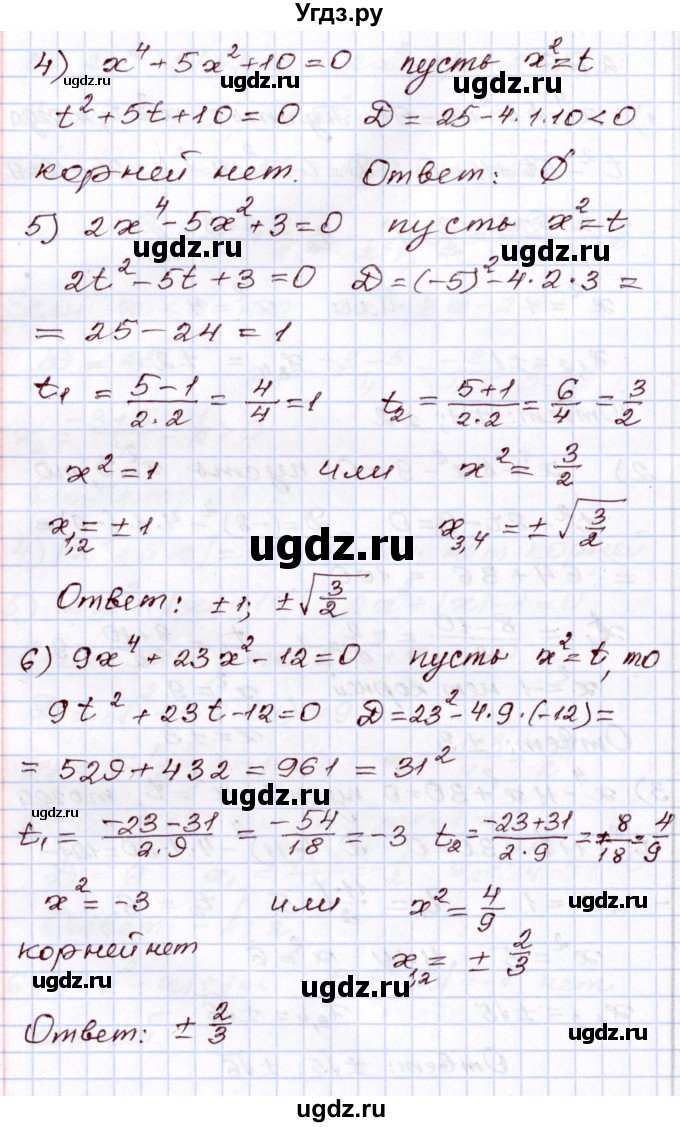 Угдз.ру
4) x⁴ + 5x² + 10 = 0 пусть x² = t
ugdz.ru ugdz.ru
t² + 5t + 10 = 0 D = 25 - 4·1·10 < 0
корней нет. Ответ: ∅
5) 2x⁴ - 5x² + 3 = 0 пусть x² = t
ugdz.ru ugdz.ru
2t² - 5t + 3 = 0 D = (-5)² - 4·2·3 =
= 25 - 24 = 1
t₁ = (5-1)/(2·2) = 4/4 = 1 t₂ = (5+1)/(2·2) = 6/4 = 3/2
ugdz.ru
x² = 1 или x² = 3/2
x₁,₂ = ±1 x₃,₄ = ±√(3/2)
ugdz.ru
Ответ: ±1; ±√(3/2)
ugdz.ru
6) 9x⁴ + 23x² - 12 = 0 пусть x² = t, то
ugdz.ru
9t² + 23t - 12 = 0 D = 23² - 4·9·(-12) =
= 529 + 432 = 961 = 31²
ugdz.ru
ugdz.ru
t₁ = (-23-31)/(2·9) = -54/18 = -3 t₂ = (-23+31)/(2·9) = 8/18 = 4/9
x² = -3 или x² = 4/9
ugdz.ru ugdz.ru
корней нет x₁,₂ = ±2/3
Ответ: ±2/3
ugdz.ru
ugdz.ru